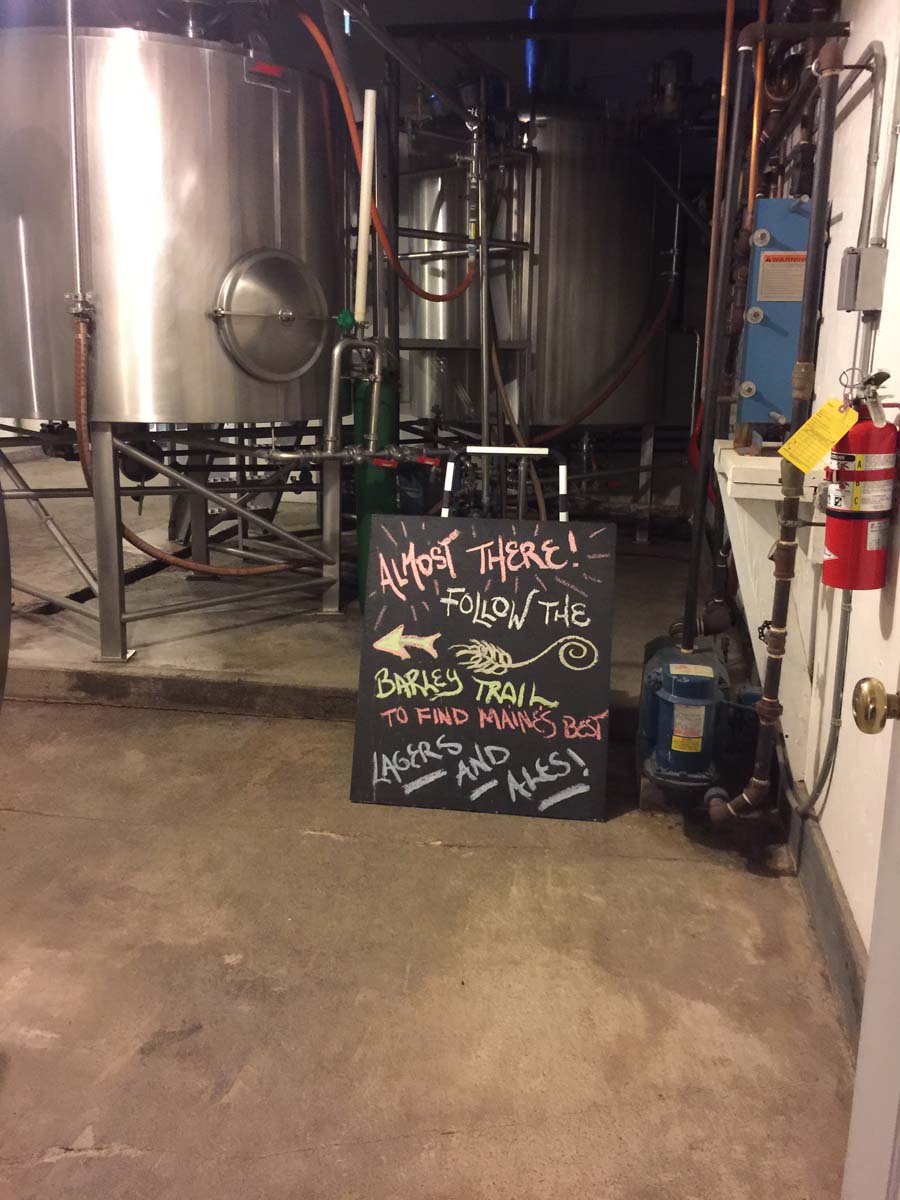 ALMOST THERE!
FOLLOW THE
BARLEY TRAIL
TO FIND MAINE'S BEST
LAGERS AND ALES!
WARNING
A
B
C